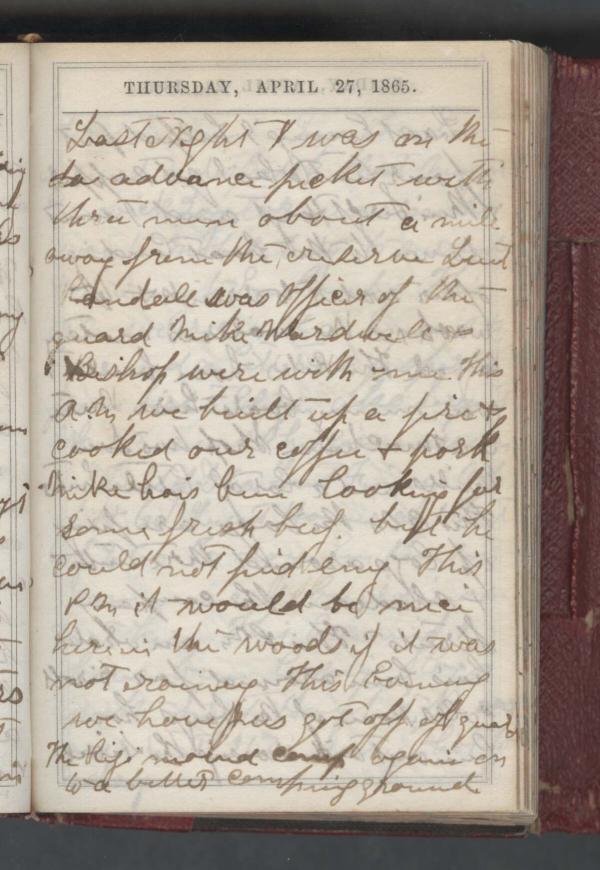 THURSDAY, APRIL 27, 1865.
Last night I was on the
advance picket with
three men about a mile
away from the reserve Lieut
Randall was Officer of the
guard Mike Wardwell &
Bishop were with me This
A.M we built up a fire &
cooked our coffee & pork
Mike has been looking for
some fresh beef. but he
could not find eny This
P.M it would be nice
here in the woods if it was
not raining This Evening
we have jus got off of guard
The Regi moved camp again on
to a better camping ground